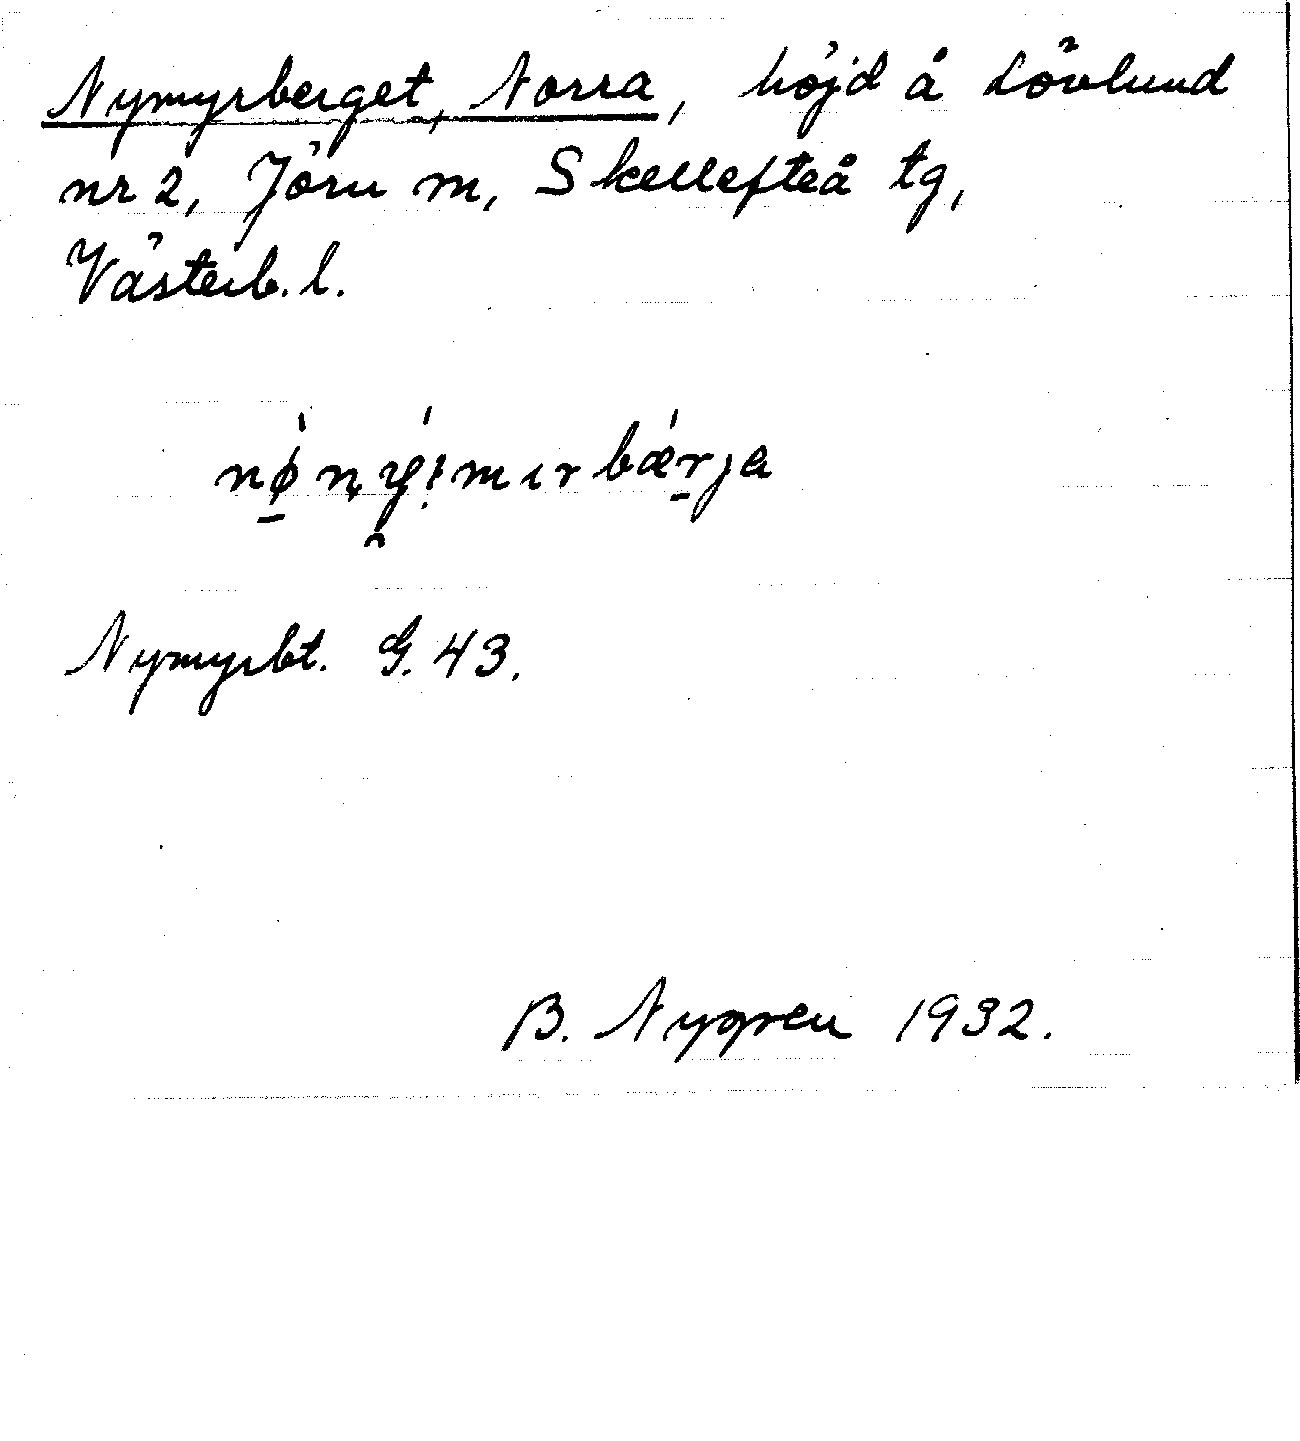 Nymyrberget, Norra, höjd å Lövlund
nr 2, Jörn m, Skellefteå tg,
Västerb. l.
Nymyrbt. G. 43.
B. Nygren 1932.